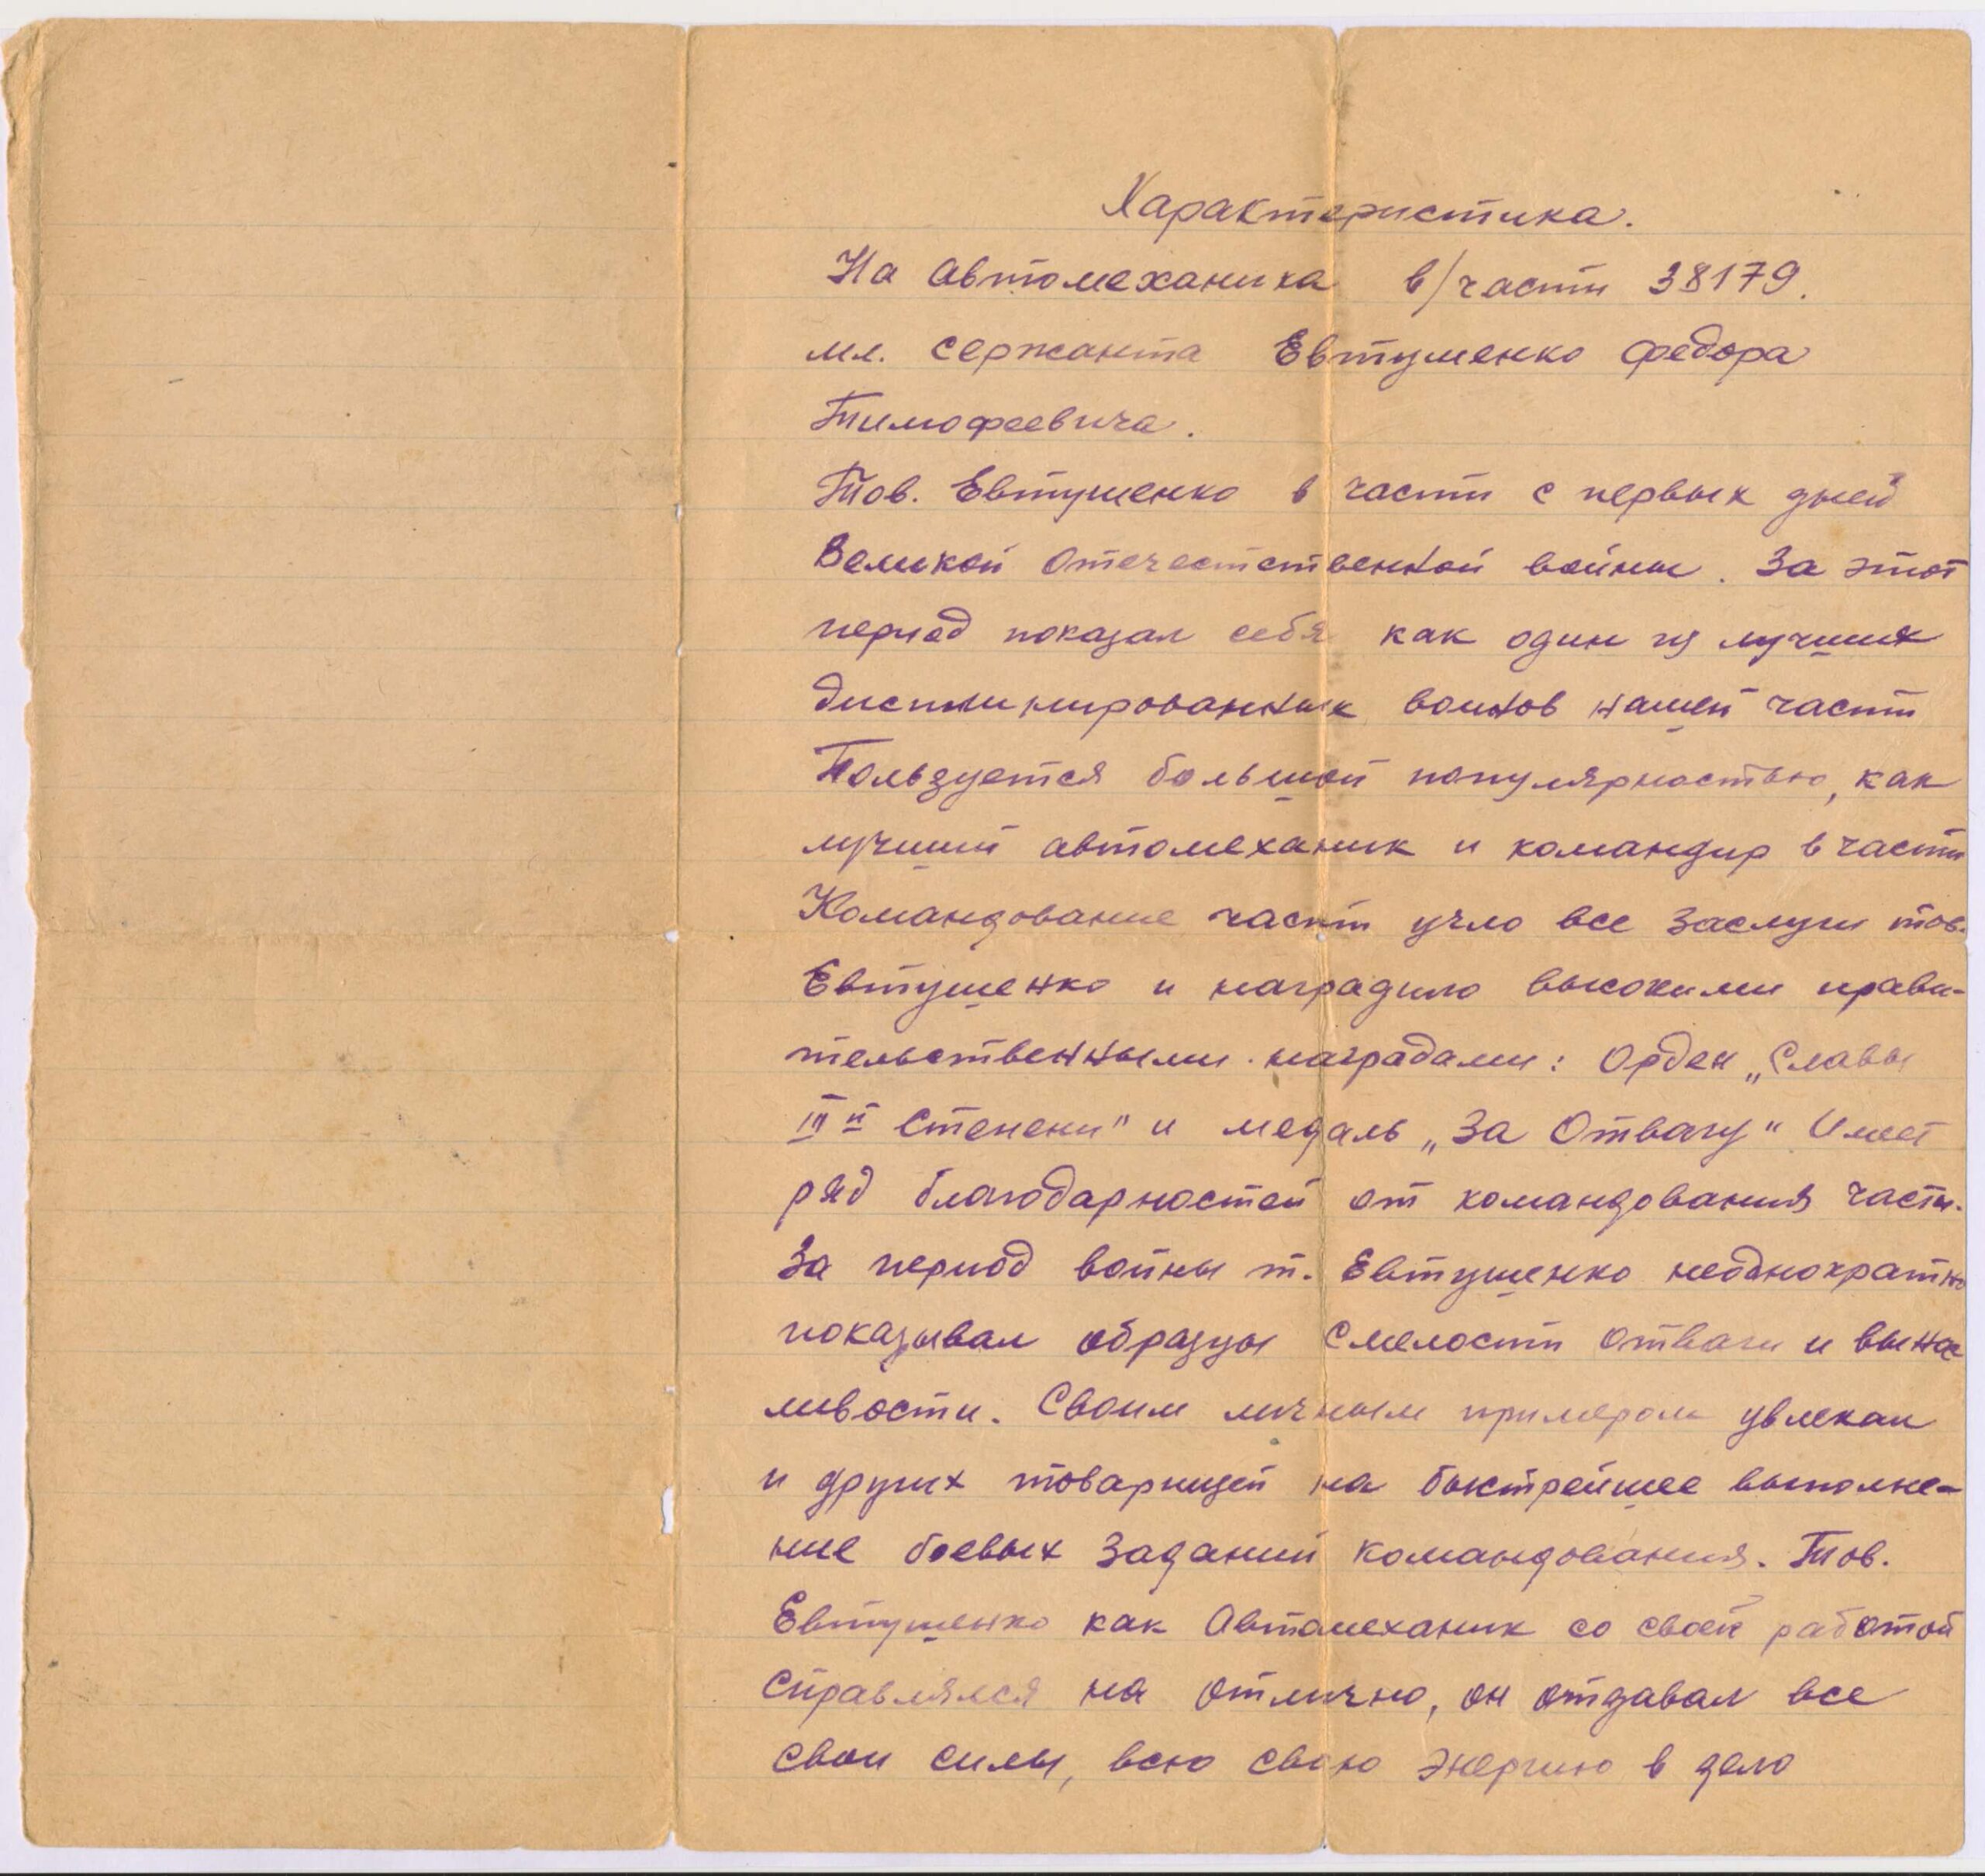 Характеристика.
На Автомеханика в/части 38179.
мл. сержанта Евтушенко Федора
Тимофеевича.
Тов. Евтушенко в части с первых дней
Великой Отечестственной войны. За этот
период показал себя как один из лучших
дисциплинированных воинов нашей части
Пользуется большой популярностью, как
лучший автомеханик и командир в части
Командование части учло все заслуги тов.
Евтушенко и наградило высокими прави-
тельственными наградами: Орден „Славы
III й Степени" и медаль „За Отвагу" Имеет
ряд благодарностей от командования части.
За период войны т. Евтушенко неоднократно
показывал образцы Смелости отваги и вынос
ливости. Своим личным примером увлекал
и других товарищей на быстрейшее выполне-
ние боевых заданий командования. Тов.
Евтушенко как Автомеханик со своей работой
справлялся на отлично, он отдавал все
свои силы, всю свою энергию в дело